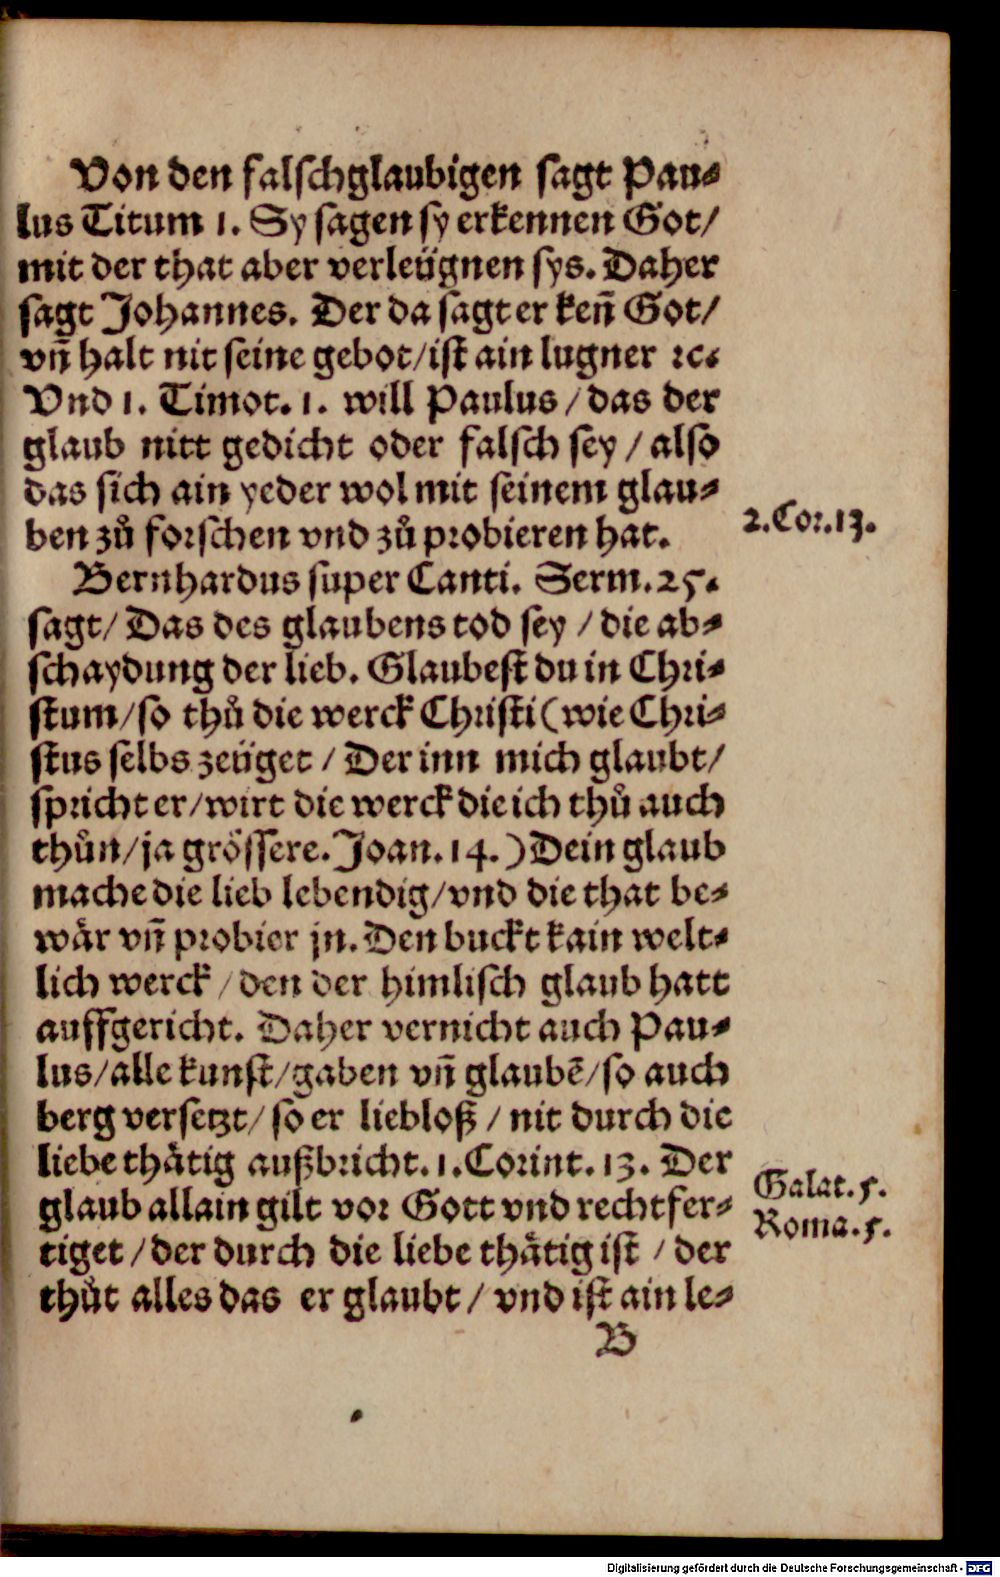 Von den falschglaubigen sagt Pau⸗
lus Titum 1. Sy sagen sy erkennen Got/
mit der that aber verleügnen sys. Daher
sagt Johannes. Der da sagt er keñ Got/
vñ halt nit seine gebot/ist ain lugner ꝛc.
Vnd 1. Timot. 1. will Paulus/das der
glaub nitt gedicht oder falsch sey/also
das sich ain yeder wol mit seinem glau⸗
ben zů forschen vnd zů probieren hat.
2.Cor.13.
Bernhardus super Canti. Serm.25.
sagt/Das des glaubens tod sey/die ab⸗
schaydung der lieb. Glaubest du in Chri⸗
stum/so thů die werck Christi(wie Chri⸗
stus selbs zeüget/Der inn mich glaubt/
spricht er/wirt die werck die ich thů auch
thůn/ja grössere. Joan.14.)Dein glaub
mache die lieb lebendig/vnd die that be⸗
wår vñ probier jn. Den buckt kain welt⸗
lich werck/den der himlisch glaub hatt
auffgericht. Daher vernicht auch Pau⸗
lus/alle kunst/gaben vñ glaubē/so auch
berg versetzt/so er liebloß/nit durch die
liebe thåtig außbricht.1.Corint.13. Der
glaub allain gilt vor Gott vnd rechtfer⸗
tiget/der durch die liebe thåtig ist/der
thůt alles das er glaubt/vnd ist ain le⸗
Galat.5.
Roma.5.
B
Digitalisierung gefördert durch die Deutsche Forschungsgemeinschaft - DFG